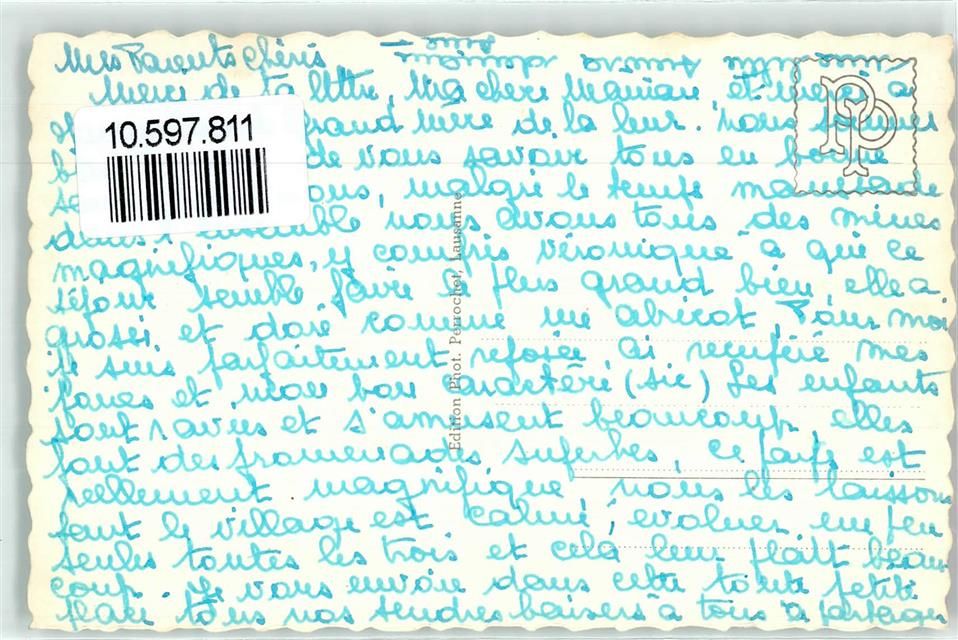 Mes Parents chéris
Merci de ta lettre, Ma chère Maman, et merci à
10.597.811
grand mère de la leur. nous sommes
de vous savoir tous en bonne
malgré le temps
dans l'ensemble nous avons tous des mines
magnifiques, y compris véronique à qui ce
séjour semble faire le plus grand bien, elle a
grossi et doré comme un abricot, Pour moi
je suis parfaitement reposée, ai recupéré mes
joues et mon bon caractère (sic) Les enfants
sont ravies et s'amusent beaucoup elles
font des promenades superbes, ce pays est
reellement magnifique, nous les laissons
tant le village est calme, evoluer un peu
seules toutes les trois et cela leur plaît beau
coup. Je vous envoie dans cette toute petite
place tous nos tendres baisers à tous à partager
Edition Phot. Perrochet, Lausanne
PP